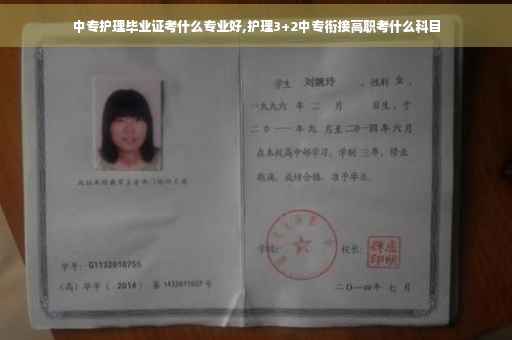 中专护理毕业证考什么专业好,护理3+2中专衔接高职考什么科目
学生 刘婉玲 ，性别 女 ，
一九九六 年 二 月 日生，于
二〇一一 年 九 月至 二〇一四 年 六 月
在本校高中部学习，学制 三年，修业
期满，成绩合格，准予毕业。
学号: G1132010755
学校:
校长:
(高) 毕字 ( 2014 ) 第 1432011037 号
二〇一四年 七 月